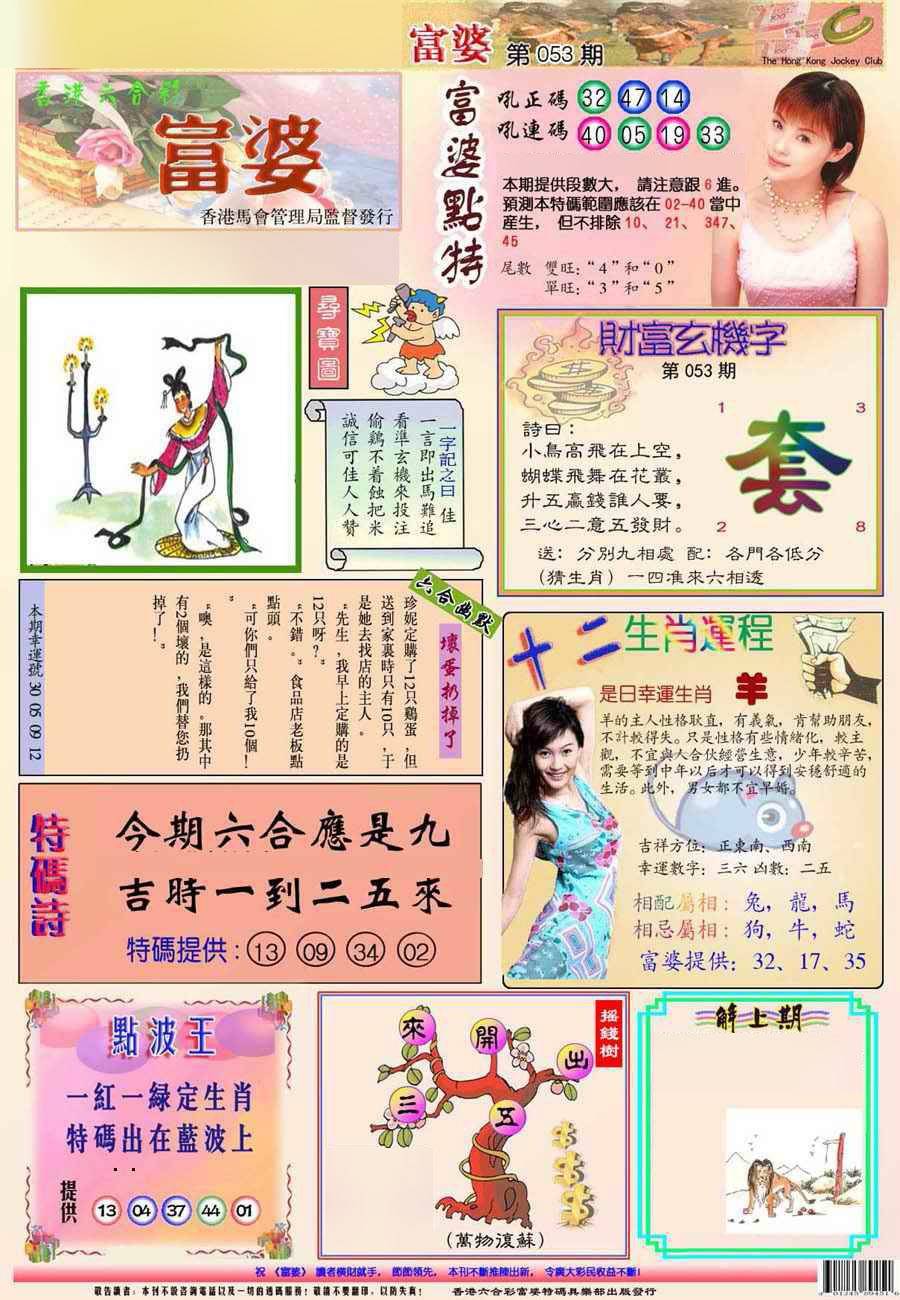 富婆 第 053 期
The Hong Kong Jockey Club
香港六合彩
富婆
香港馬會管理局監督發行
富婆點特
吼正碼 32 47 14
吼連碼 40 05 19 33
本期提供段數大， 請注意跟 6 進。
預測本特碼範圍應該在 02-40 當中
産生， 但不排除 10、 21、 347、
45
尾數 雙旺:“4”和“0”
單旺:“3”和“5”
尋寶圖
一字記之曰 佳
一言即出馬難追
看準玄機來投注
偷鷄不着蝕把米
誠信可佳人人贊
財富玄機字
第 053 期
1
3
套
2
8
詩曰:
小鳥高飛在上空，
蝴蝶飛舞在花叢，
升五贏錢誰人要，
三心二意五發財。
送: 分別九相處 配: 各門各低分
(猜生肖) 一四准來六相透
六合幽默
壞蛋扔掉了
珍妮定購了12只鷄蛋，但
送到家裏時只有10只，于
是她去找店的主人。
“先生，我早上定購的是
12只呀？”
“不錯。”食品店老板點
點頭。
“可你們只給了我10個！
”
“噢，是這樣的。那其中
有2個壞的，我們替您扔
掉了！”
本期幸運號 30 05 09 12
十二生肖運程
是日幸運生肖 羊
羊的主人性格耿直，有義氣，肯幫助朋友，
不計較得失。只是性格有些情緒化，較主
觀，不宜與人合伙經營生意，少年較辛苦，
需要等到中年以后才可以得到安穩舒適的
生活。此外，男女都不宜早婚。
吉祥方位: 正東南、西南
幸運數字: 三六 凶數: 二五
相配屬相: 兔，龍，馬
相忌屬相: 狗，牛，蛇
富婆提供: 32、17、35
特碼詩
今期六合應是九
吉時一到二五來
特碼提供: 13 09 34 02
點波王
一紅一緑定生肖
特碼出在藍波上
提供 13 04 37 44 01
搖錢樹
來 開 出
三 五
(萬物復蘇)
解上期
祝 《富婆》 讀者橫財就手， 節節領先， 本刊不斷推陳出新， 令廣大彩民收益不斷！
敬告讀者: 本刊不設咨詢電話以及一切的透碼服務！敬請不要翻印，以防失真！ 香港六合彩富婆特碼具樂部出版發行